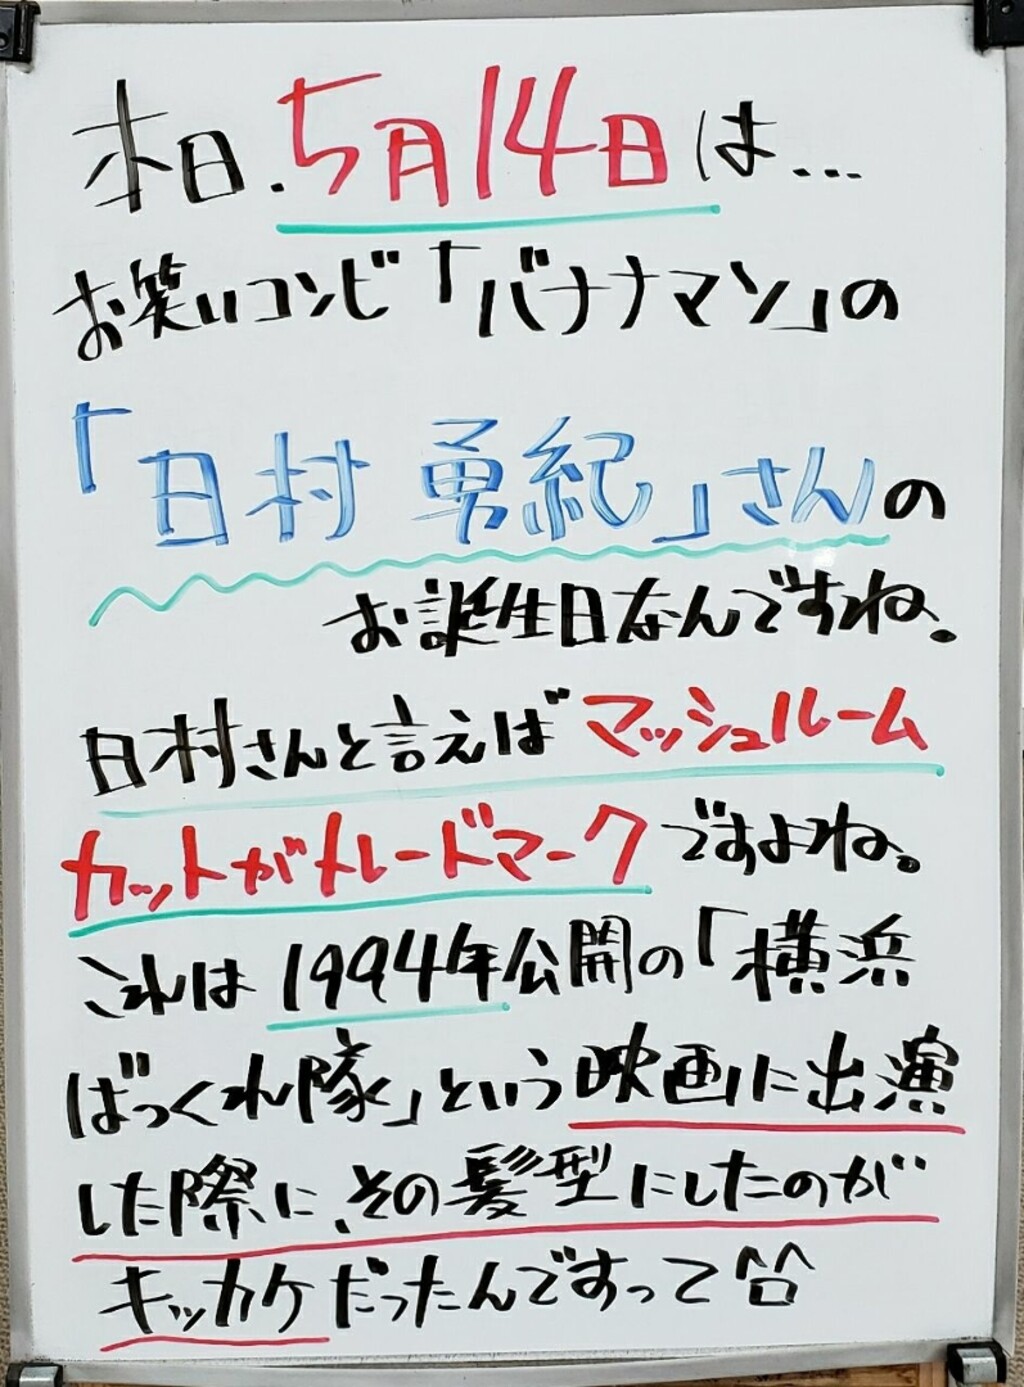 本日、5月14日は...
お笑いコンビ「バナナマン」の
「日村 勇紀」さんの
お誕生日なんですね。
日村さんと言えばマッシュルーム
カットがトレードマークですよね。
これは1994年公開の「横浜
ばっくれ隊」という映画に出演
した際に、その髪型にしたのが
キッカケだったんですって^□^